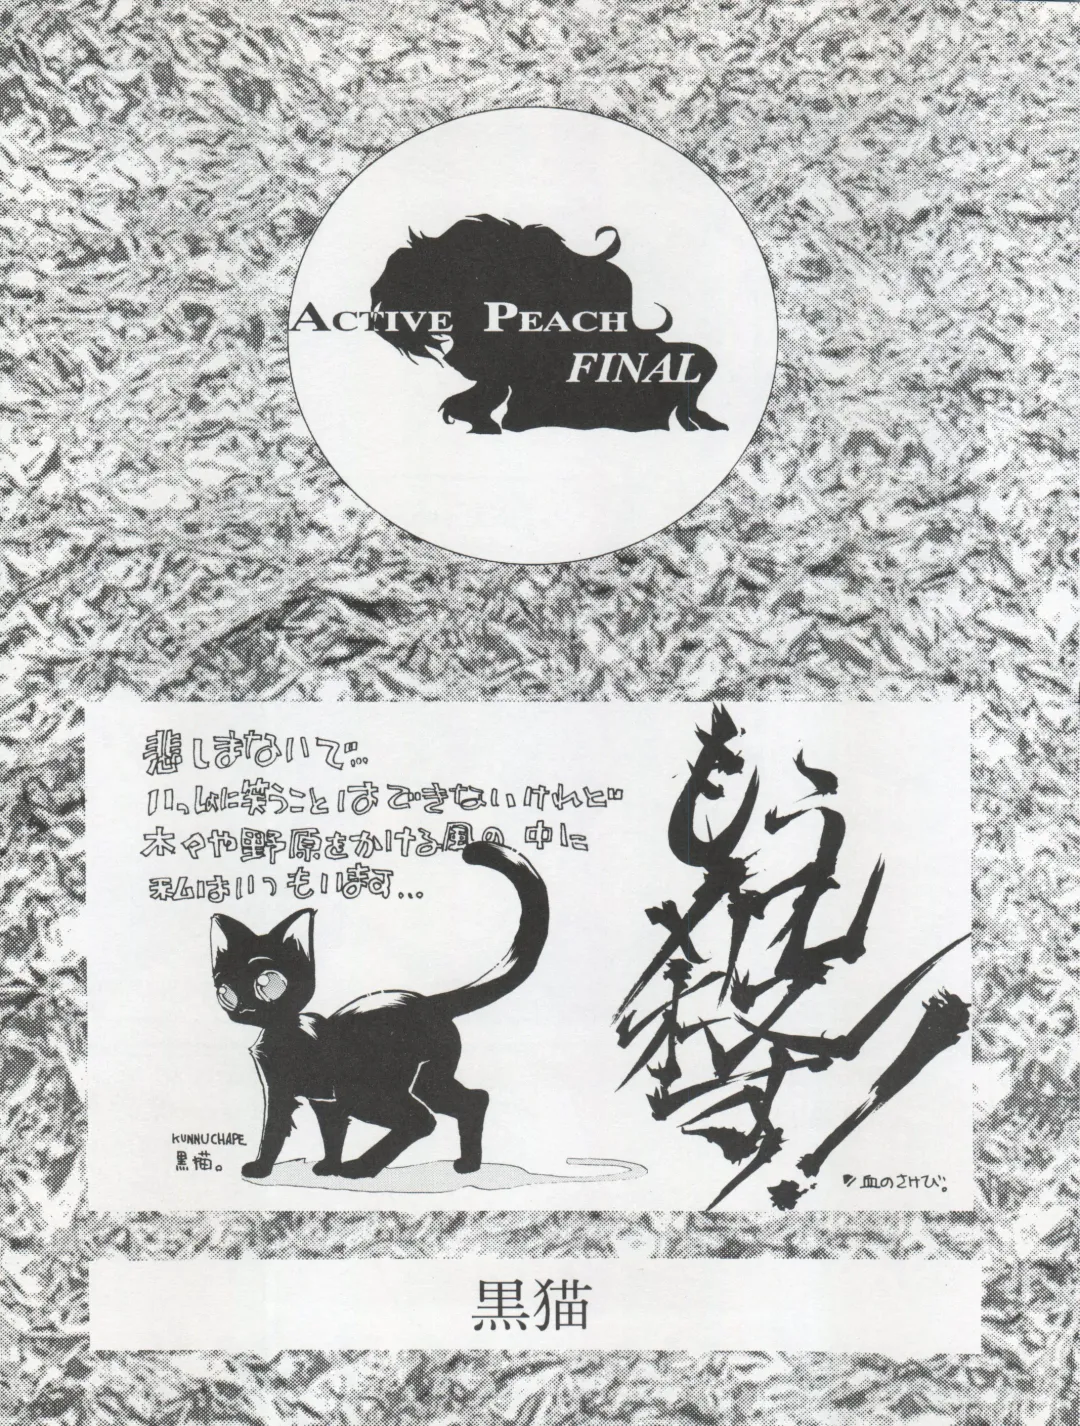 ACTIVE PEACH
FINAL
悲しまないで…
いっしょに笑うことはできないけれど
木々や野原をかける風の中に
私はいつもいます…
KUNNUCHAPE
黒猫。
血のさけび。
黒猫